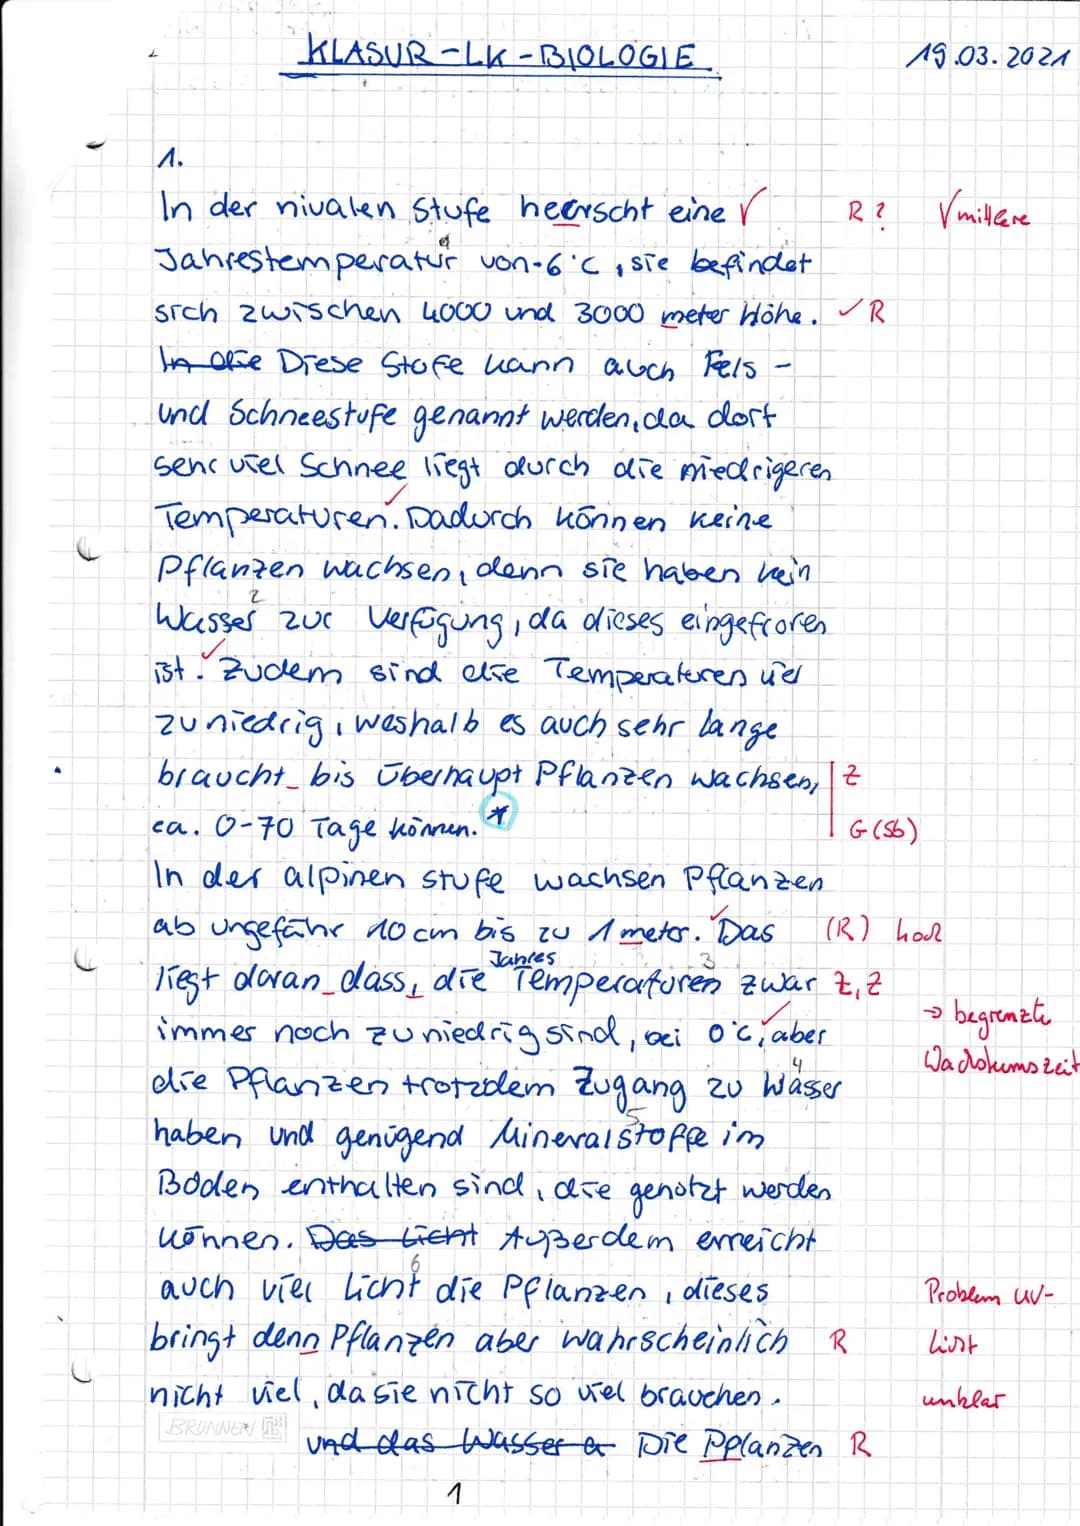 KLASUR-LK-BIOLOGIE 19.03.2021
1.
In der nivalen Stufe heerscht eine √ R ? √ mittlere
Jahrestemperatur von -6°C, sie befindet
sich zwischen 4000 und 3000 meter Höhe. ✓ R
In die Diese Stufe kann auch Fels -
und Schneestufe genannt werden, da dort
sehr viel Schnee liegt durch die niedrigeren
Temperaturen. Dadurch können keine
Pflanzen wachsen, denn sie haben kein
2
Wasser zur Verfügung, da dieses eingefroren
ist. Zudem sind die Temperaturen viel
zu niedrig, weshalb es auch sehr lange
braucht_ bis überhaupt Pflanzen wachsen, Z
ca. 0-70 Tage können. * G (Sb)
In der alpinen stufe wachsen Pflanzen
ab ungefähr 10 cm bis zu 1 meter. Das (R) hoch
Jahres 3
liegt daran_dass, die Temperaturen zwar Z, Z
immer noch zu niedrig sind, bei 0°C, aber → begrenzte
4
die Pflanzen trotzdem Zugang zu Wasser Wachstumszeit
5
haben und genügend Mineralstoffe im
Boden enthalten sind, die genutzt werden
können. Das Licht Außerdem erreicht
6
auch viel Licht die Pflanzen, dieses Problem UV-
bringt denn Pflanzen aber wahrscheinlich R Licht
nicht viel, da sie nicht so viel brauchen. unklar
BRUNNEN
und das Wasser a Die Pplanzen R
1